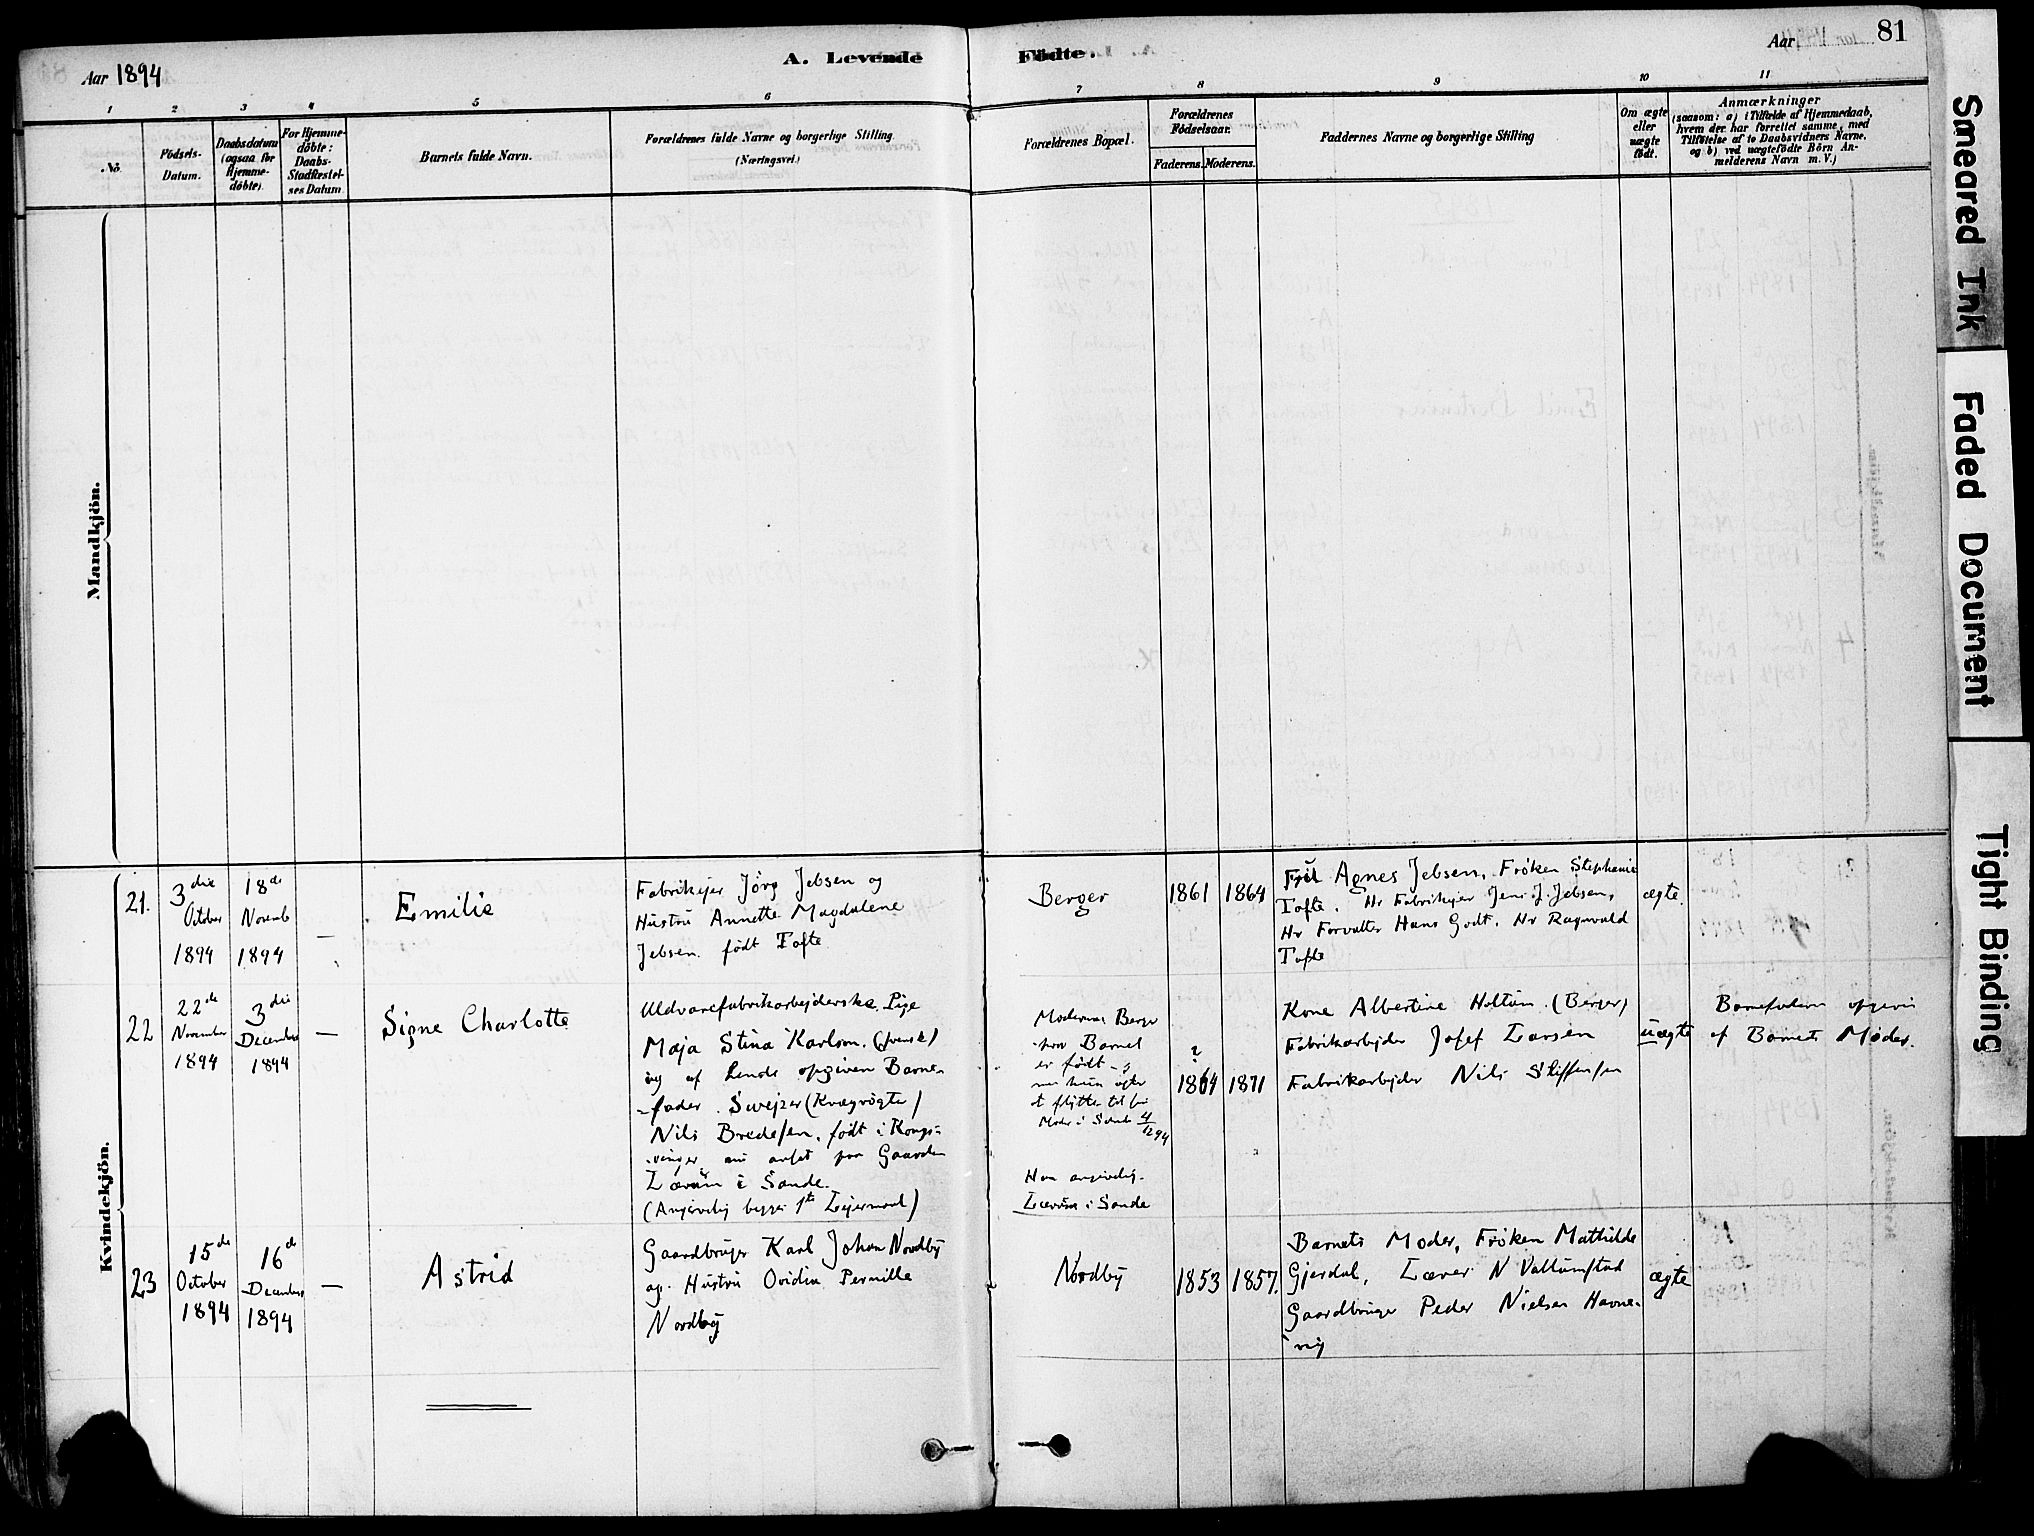 Aar 1894
A. Levende Födte.
Aar
81
1
2
3
4
5
6
7
8
9
10
11
No.
Födsels-
Datum.
Daabsdatum
(ogsaa for
Hjemme-
döbte).
For Hjemme-
döbte:
Daabs-
Stadfæstel-
ses Datum
Barnets fulde Navn.
Forældrenes fulde Navne og borgerlige Stilling.
(Næringsvei.)
Forældrenes Bopæl.
Forældrenes
Födselsaar.
Faderens.
Moderens.
Faddernes Navne og borgerlige Stilling
Om ægte
eller
uægte
födt.
Anmærkninger
(saasom: a) i Tilfælde af Hjemmedaab,
hvem der har forrettet samme, med
Tilföielse af to Daabsvidners Navne,
og b) ved uægtefödte Börn An-
melderens Navn m. V.)
Mandkjön.
Kvindekjön.
21.
3die
October
1894
18de
Novemb
1894
—
Emilie
Fabrikejer Jörg Jebsen og
Hustru Annette Magdalene
Jebsen. født Tofte
Berger
1861
1864
Agnes Jebsen, Frøken Stephanie
Tofte. Hr Fabrikejer Jens J. Jebsen,
Hr Forvalter Hans Godt. Hr Ragnvald
Tofte
ægte.
22
22de
November
1894
3die
December
1894
—
Signe Charlotte
Uldvarefabrikarbejderske, Pige
Maja Stina Karlson. (svensk)
og af hende opgiven Barne-
-fader. Swejzer (Kvægrögter)
Nils Bredesen, født i Kongs-
vinger nu ansat paa Gaarden
i Sande.
(Angivelig begges 1ste Lejermaal)
Moderens Berger
hvor Barnet
er født -
Moder i Sande 4/12 94
Han angivelig.
i Sande
?
1864
1871
Kone Albertine Holtum (Berger)
Fabrikarbejder Josef Larsen
Fabrikarbejder Nils Steffensen
uægte
Barnefaderen opgiven
af Barnets Moder.
23
15de
October
1894
16de
December
1894
—
Astrid
Gaardbruger Karl Johan Nordby
og Hustru Ovidia Pernille
Nordby
Nordby
1853
1857.
Barnets Moder, Frøken Mathilde
Gjerdal, Lærer N Vallumstad
Gaardbruger Peder Nielsen Havne-
vig
ægte
Smeared Ink
Faded Document
Tight Binding